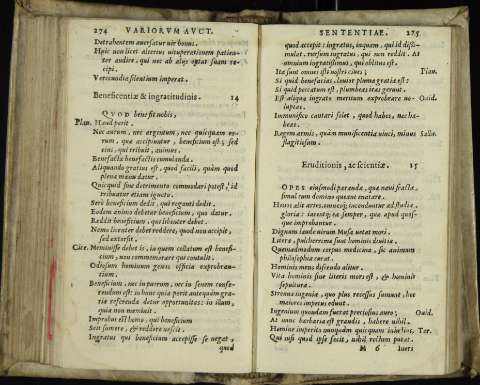 274 VARIORVM AVCT.
Detrahentem aversatur vir bonus.
Huic non licet alterius vituperationem patien-
ter audire, qui nec ab aliis optat suam re-
cipi.
Verecundia silentium imperat.
Beneficentiæ & ingratitudinis. 14
QVOD benefit nobis,
Plau. Haud perit.
Nec aurum, nec argentum, nec quicquam eo-
rum, quæ accipiuntur, beneficium est; sed
eius, qui tribuit, animus.
Benefacta benefactis cumulanda.
Aliquando gratius est, quod facili, quàm quod
plena manu datur.
Quicquid sine detrimento commodari potest, id
tribuatur etiam ignoto.
Serò beneficium dedit, qui roganti dedit.
Eodem animo debetur beneficium, quo datur.
Reddit beneficium, qui libenter debet.
Nemo licenter debet reddere, quod non accipit,
sed extorsit.
Cice. Meminisse debet is, in quem collatum est benefi-
cium, non commemorare qui contulit.
Odiosum hominum genus officia exprobran-
tium.
Beneficium, nec in puerum, nec in senem confe-
rendum est: in hunc quia perit antequàm gra-
tiæ referendæ detur opportunitas: in illum,
quia non meminit.
Improbus est homo, qui beneficium
Scit sumere, & reddere nescit.
Ingratus qui beneficium accepisse se negat,
quod
SENTENTIAE. 275
quod accepit: ingratus, inquam, qui id dissi-
mulat. rursum ingratus, qui non reddit. At
omnium ingratissimus, qui oblitus est.
Ita sunt omnes isti nostri cives; Plau.
Si quid benefacias, levior pluma gratia est:
Si quid peccatum est, plumbeas iras gerunt.
Est aliqua ingrato meritum exprobrare vo- Ouid.
luptas.
Immunifico cantari solet, quod habes, nec ha-
beas.
Regem armis, quàm munificentia vinci, minus Salle.
flagitiosum.
Eruditionis, ac scientiæ. 15
OPES eiusmodi parandæ, quæ navi fracta,
simul cum domino queant enatare.
Honos alit artes, omnesq; incenduntur ad studia
gloria: iacentq; ea semper, quæ apud quos-
que improbantur.
Dignum laude virum Musa vetat mori.
Literæ, pulcherrima sunt hominis divitiæ.
Quemadmodum corpus medicina, sic animum
philosophia curat.
Hominis mens discendo alitur.
Vita hominis sine literis mors est, & hominis
sepultura.
Strenua ingenia, quo plus recessus sumunt, hoc
maiores impetus edunt.
Ingenium quondam fuerat preciosius auro; Ouid.
At nunc barbaria est grandis, habere nihil.
Homine imperito nunquam quicquam iniustius, Ter.
Qui nisi quod ipse facit, nihil rectum putat.
M 6